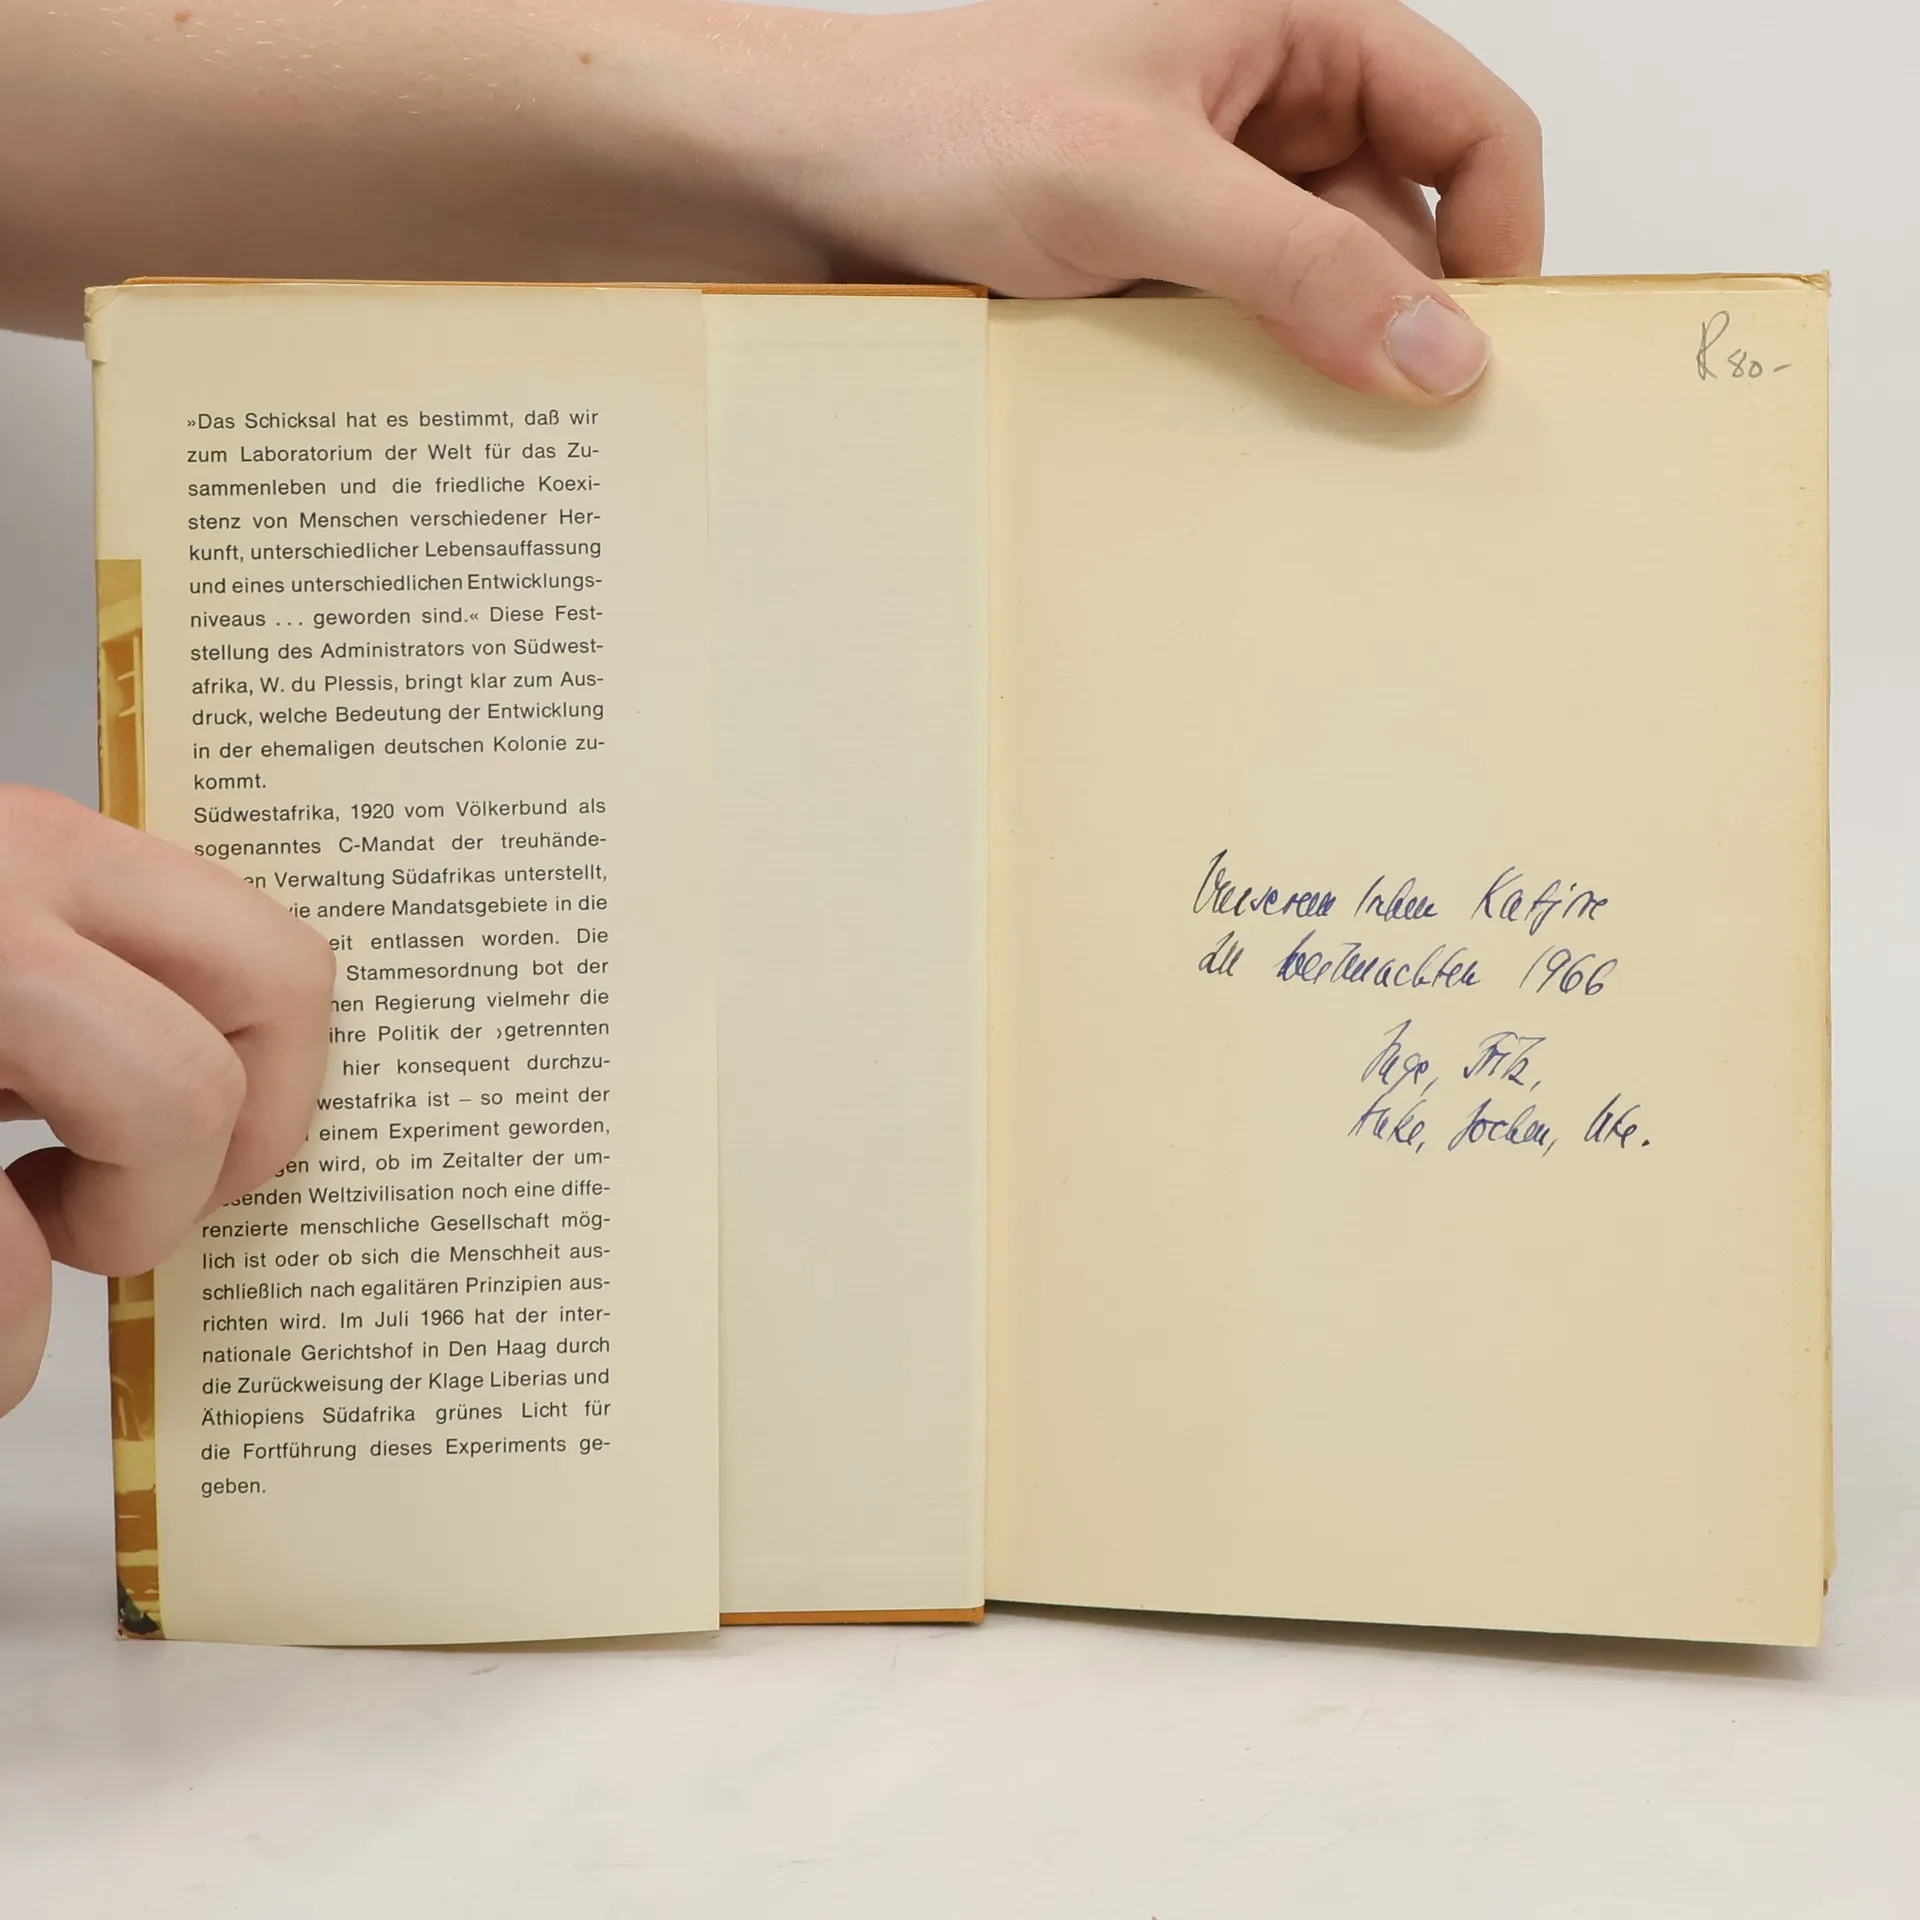 »Das Schicksal hat es bestimmt, daß wir
zum Laboratorium der Welt für das Zu-
sammenleben und die friedliche Koexi-
stenz von Menschen verschiedener Her-
kunft, unterschiedlicher Lebensauffassung
und eines unterschiedlichen Entwicklungs-
niveaus ... geworden sind.« Diese Fest-
stellung des Administrators von Südwest-
afrika, W. du Plessis, bringt klar zum Aus-
druck, welche Bedeutung der Entwicklung
in der ehemaligen deutschen Kolonie zu-
kommt.
Südwestafrika, 1920 vom Völkerbund als
sogenanntes C-Mandat der treuhände-
en Verwaltung Südafrikas unterstellt,
andere Mandatsgebiete in die
eit entlassen worden. Die
Stammesordnung bot der
hen Regierung vielmehr die
ihre Politik der ›getrennten
hier konsequent durchzu-
westafrika ist – so meint der
einem Experiment geworden,
gen wird, ob im Zeitalter der um-
senden Weltzivilisation noch eine diffe-
renzierte menschliche Gesellschaft mög-
lich ist oder ob sich die Menschheit aus-
schließlich nach egalitären Prinzipien aus-
richten wird. Im Juli 1966 hat der inter-
nationale Gerichtshof in Den Haag durch
die Zurückweisung der Klage Liberias und
Äthiopiens Südafrika grünes Licht für
die Fortführung dieses Experiments ge-
geben.
R 80-
Unserem
zu Weihnachten 1966
Inge, Fritz,
Anke, Jochen, Ute.